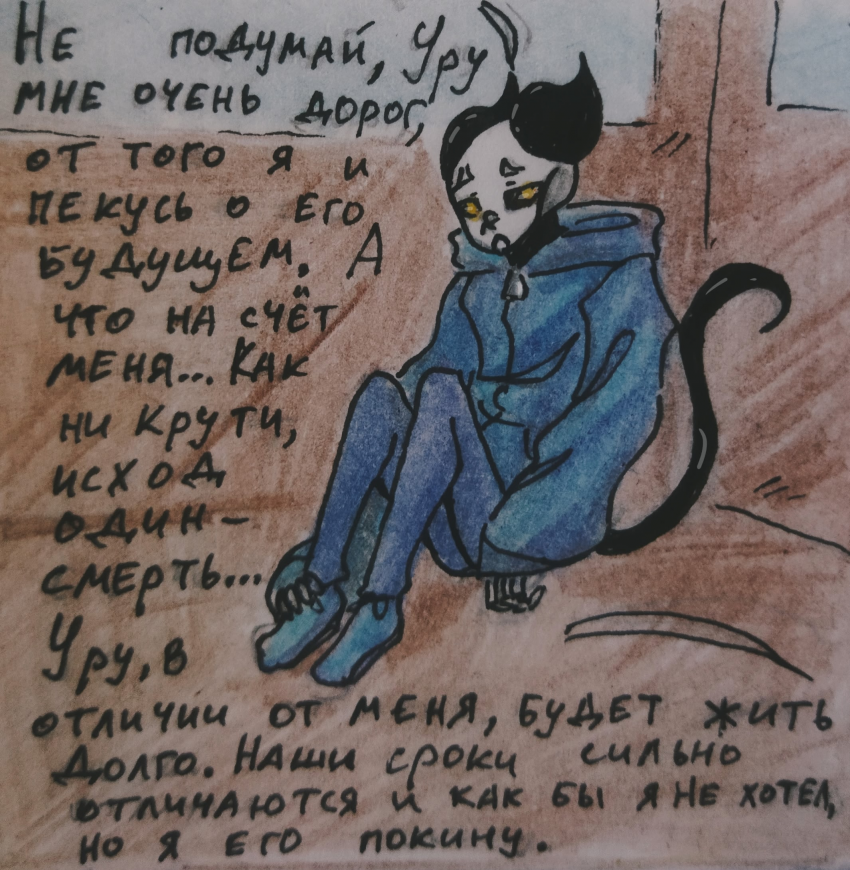 Не подумай, Уру
мне очень дорог,
от того я и
пекусь о его
будущем. А
что на счёт
меня... Как
ни крути,
исход
один -
смерть...
Уру, в
отличии от меня, будет жить
долго. Наши сроки сильно
отличаются и как бы я не хотел,
но я его покину.